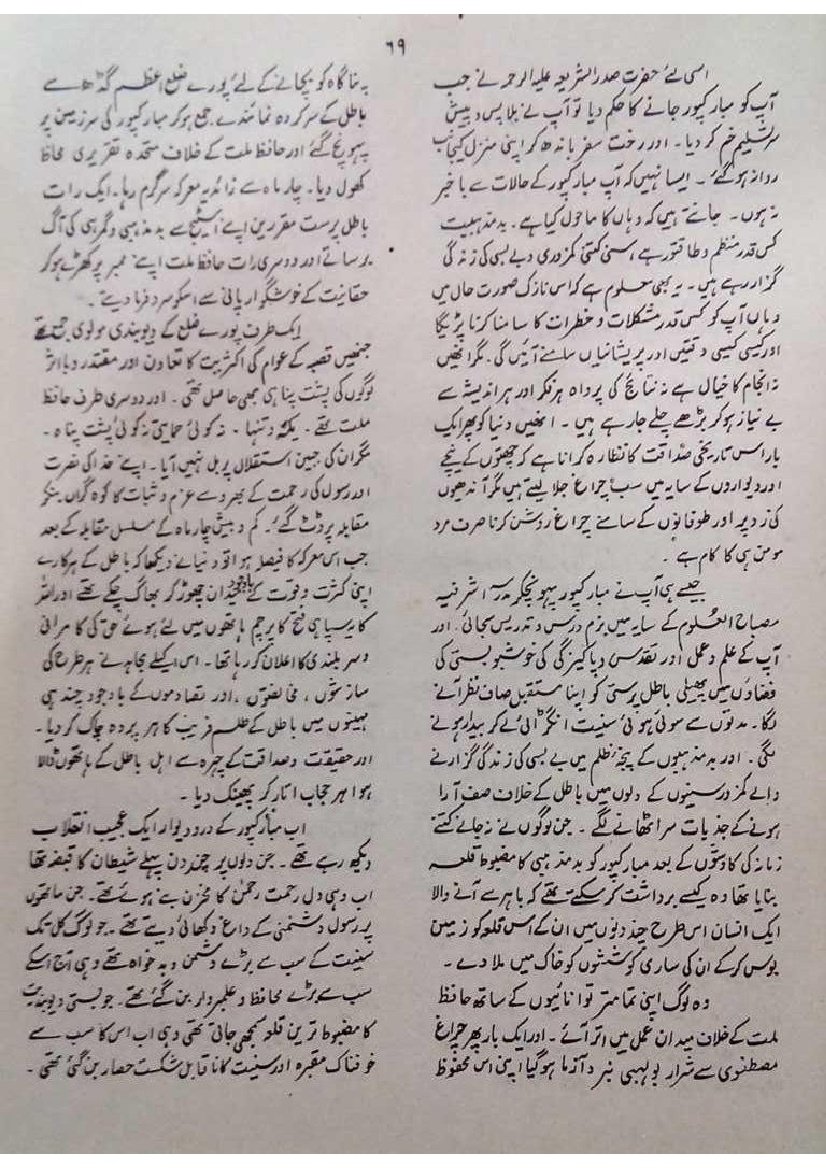 ٦٩
اسی لئے حضرت صدر الشریعہ علیہ الرحمہ نے جب
آپ کو مبارکپور جانے کا حکم دیا تو آپ نے بلا پس و پیش
سر تسلیم خم کر دیا۔ اور رخت سفر باندھ کر اپنی منزل کیجانب
روانہ ہو گئے۔ ایسا نہیں کہ آپ مبارکپور کے حالات سے باخبر
نہ ہوں۔ جانتے ہیں کہ وہاں کا ماحول کیا ہے۔ بد مذہبیت
کس قدر منظم و طاقتور ہے، سنی کتنی کمزوری و بے بسی کی زندگی
گزار رہے ہیں۔ یہ بھی معلوم ہے کہ اس نازک صورت حال میں
وہاں آپ کو کس قدر مشکلات و خطرات کا سامنا کرنا پڑیگا
اور کیسی کیسی دقتیں اور پریشانیاں سامنے آئیں گی۔ مگر انھیں
نہ انجام کا خیال ہے نہ نتائج کی پرواہ ہر فکر اور ہر اندیشہ سے
بے نیاز ہو کر بڑھے چلے جا رہے ہیں۔ انھیں دنیا کو پھر ایک
بار اس تاریخی صداقت کا نظارہ کرانا ہے کہ چھتوں کے نیچے
اور دیواروں کے سایہ میں سب چراغ جلا لیتے ہیں مگر آندھیوں
کی زد پر اور طوفانوں کے سامنے چراغ روشن کرنا صرف مرد
مومن ہی کا کام ہے۔
جیسے ہی آپ نے مبارکپور پہونچکر مدرسہ اشرفیہ
مصباح العلوم کے سایہ میں بزم درس و تدریس سجائی۔ اور
آپ کے علم و عمل اور تقدس و پاکیزگی کی خوشبو بستی کی
فضاؤں میں پھیلی باطل پرستی کو اپنا مستقبل صاف نظر آنے
لگا۔ مدتوں سے سوئی ہوئی سنیت انگڑائی لے کر بیدار ہونے
لگی۔ اور بد مذہبوں کے پنجۂ ظلم میں بے بسی کی زندگی گزارنے
والے کمزور سنیوں کے دلوں میں باطل کے خلاف صف آرا
ہونے کے جذبات سر اٹھانے لگے۔ جن لوگوں نے نہ جانے کتنے
زمانہ کی کاوشوں کے بعد مبارکپور کو بد مذہبی کا مضبوط قلعہ
بنایا تھا وہ کیسے برداشت کر سکتے تھے کہ باہر سے آنے والا
ایک انسان اس طرح چند دنوں میں ان کے اس قلعہ کو زمین
بوس کر کے ان کی ساری کوششوں کو خاک میں ملا دے۔
وہ لوگ اپنی تمامتر توانائیوں کے ساتھ حافظ
ملت کے خلاف میدان عمل میں اتر آئے۔ اور ایک بار پھر چراغ
مصطفوی سے شرار بولہبی نبرد آزما ہو گیا اپنی اس محفوظ
پناہ گاہ کو بچانے کے لئے پورے ضلع اعظم گڈھ سے
باطل کے سرکردہ نمائندے جمع ہو کر مبارکپور کی سرزمین پر
پہونچ گئے اور حافظ ملت کے خلاف متحدہ تقریری محاذ
کھول دیا۔ چار ماہ سے زائد یہ معرکہ سرگرم رہا۔ ایک رات
باطل پرست مقررین اپنے اسٹیج سے بد مذہبی و گمرہی کی آگ
برساتے اور دوسری رات حافظ ملت اپنے ممبر پر کھڑے ہو کر
حقانیت کے خوشگوار پانی سے اسکو سرد فرما دیتے۔
ایک طرف پورے ضلع کے دیوبندی مولوی جمع تھے
جنھیں قصبہ کے عوام کی اکثریت کا تعاون اور مقتدر و با اثر
لوگوں کی پشت پناہی بھی حاصل تھی۔ اور دوسری طرف حافظ
ملت تھے۔ یکہ و تنہا۔ نہ کوئی حمایتی نہ کوئی پشت پناہ۔
مگر ان کی جبین استقلال پر بل نہیں آیا۔ اپنے خدا کی نصرت
اور رسول کی رحمت کے بھروسے عزم و ثبات کا کوہ گراں بنکر
مقابلہ پر ڈٹ گئے۔ کم و بیش چار ماہ کے مسلسل مقابلہ کے بعد
جب اس معرکہ کا فیصلہ ہوا تو دنیا نے دیکھا کہ باطل کے ہرکارے
اپنی کثرت و قوت کے باوجود میدان چھوڑ کر بھاگ چکے تھے اور اللہ
کا یہ سپاہی فتح کا پرچم ہاتھوں میں لئے ہوئے حق کی کامرانی
و سر بلندی کا اعلان کر رہا تھا۔ اس اکیلے مجاہد نے ہر طرح کی
سازشوں، مخالفتوں، اور تصادموں کے باوجود چند ہی
مہینوں میں باطل کے طلسم فریب کا ہر پردہ چاک کر دیا۔
اور حقیقت و صداقت کے چہرہ سے اہل باطل کے ہاتھوں ڈالا
ہوا ہر حجاب اتار کر پھینک دیا۔
اب مبارکپور کے در و دیوار ایک عجیب انقلاب
دیکھ رہے تھے۔ جن دلوں پر چند دن پہلے شیطان کا قبضہ تھا
اب وہی دل رحمت رحمٰن کا مخزن بنے ہوئے تھے۔ جن ماتھوں
پر رسول دشمنی کے داغ دکھائی دیتے تھے۔ جو لوگ کل تک
سنیت کے سب سے بڑے دشمن و بد خواہ تھے وہی آج اسکے
سب سے بڑے محافظ و علمبردار بن گئے تھے۔ جو بستی دیوبندیت
کا مضبوط ترین قلعہ سمجھی جاتی تھی وہی اب اس کا سب سے
خوفناک مقبرہ اور سنیت کا ناقابل شکست حصار بن گئی تھی۔